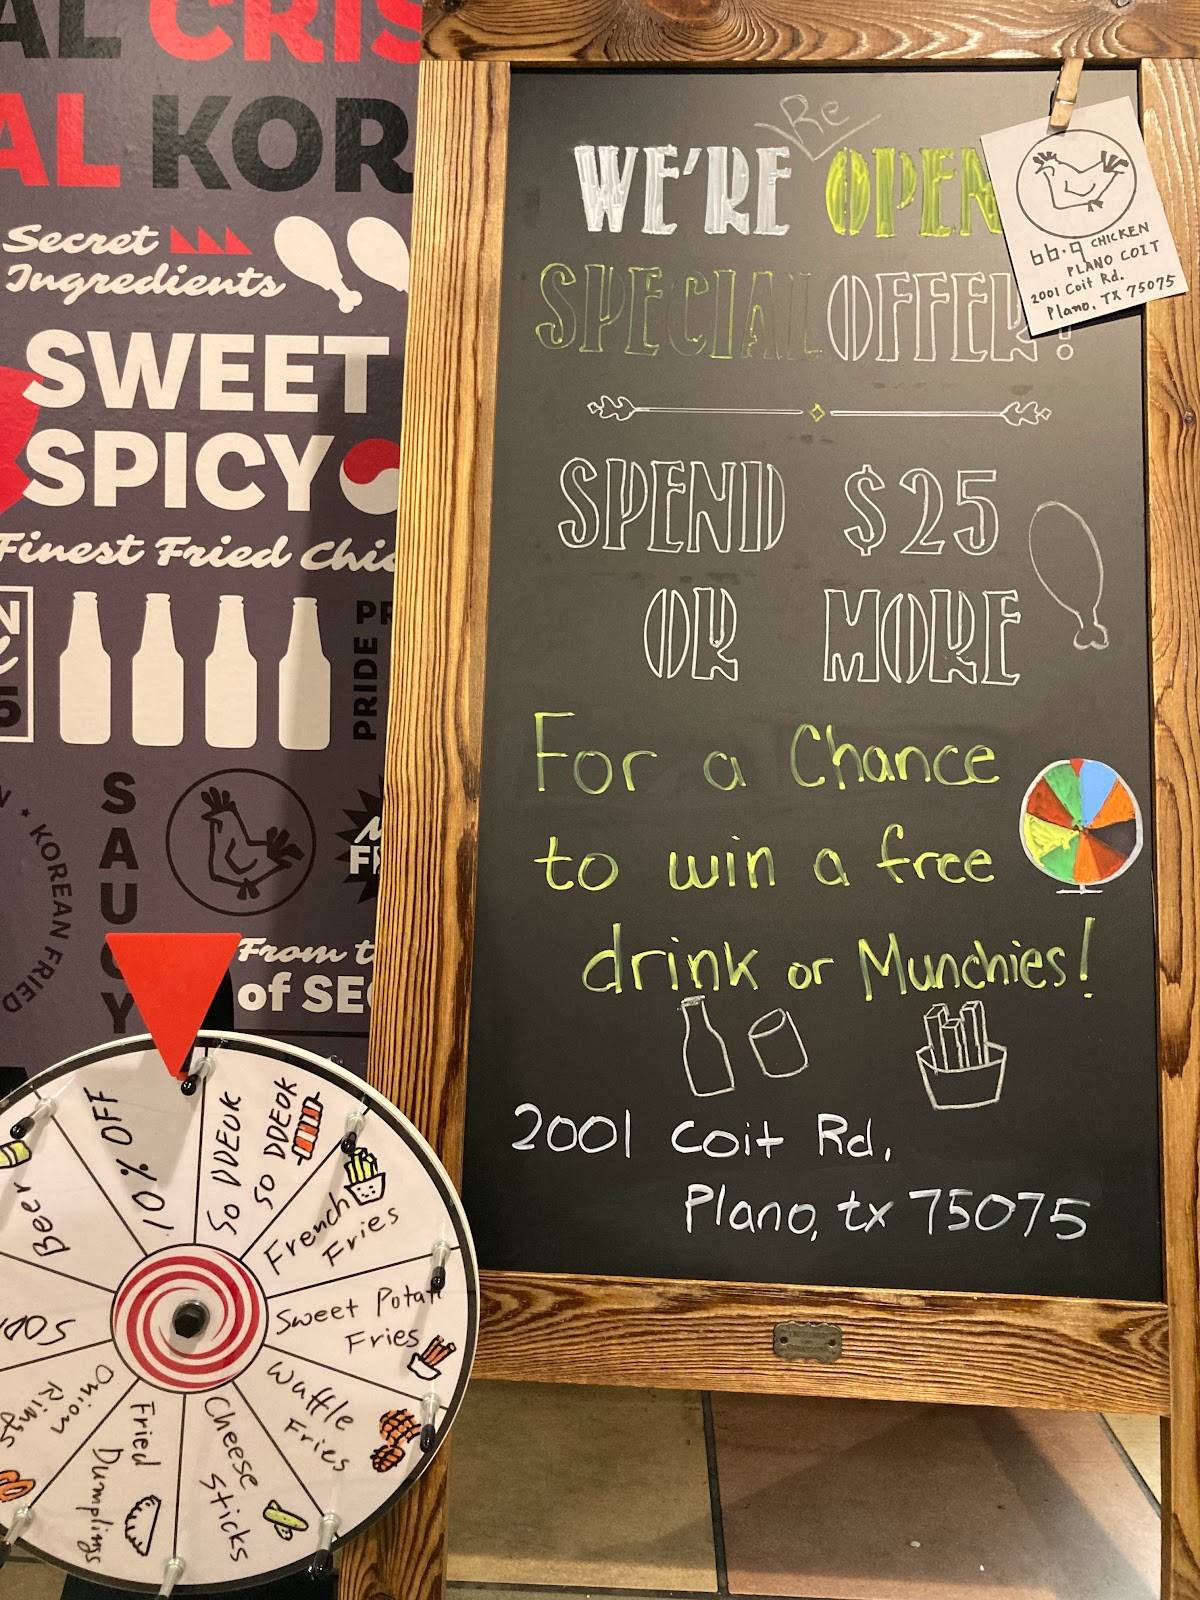 AL CRIS
AL KOR
Secret
Ingredients
SWEET
SPICY
Finest Fried Chic
PR
PRIDE
N
5
KOREAN FRIED
SAUCY
M
FR
From t
of SEC
Re
WE'RE OPEN
SPECIAL OFFER!
bb.q CHICKEN
PLANO COIT
2001 Coit Rd.
Plano, TX 75075
SPEND $25
OR MORE
For a Chance
to win a free
drink or Munchies!
2001 Coit Rd.
Plano, tx 75075
10% OFF
SO DDEUK
SO DDEOK
French
Fries
Sweet Potat
Fries
Waffle
Fries
Cheese
Sticks
Fried
Dumplings
Onion
Rings
SOD
Beer